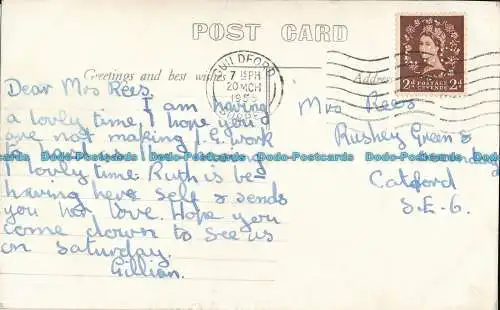 POST CARD
Greetings and best wishes
Address
GUILDFORD
7 15 PM
20 MCH
195
SURREY
POSTAGE
REVENUE
2d 2d
Dear Mrs Rees,
I am having
a lovly time. I hope you
are not making J.G. work
I lovly time. Ruth is be
having here self & sends
you her love. Hope you
come down to see us
on Saturday.
Gillian.
Mrs Rees
Rushey Green
Catford
S.E.6.
Dodo-Postcards Dodo-Postcards Dodo-Postcards Dodo-Postcards